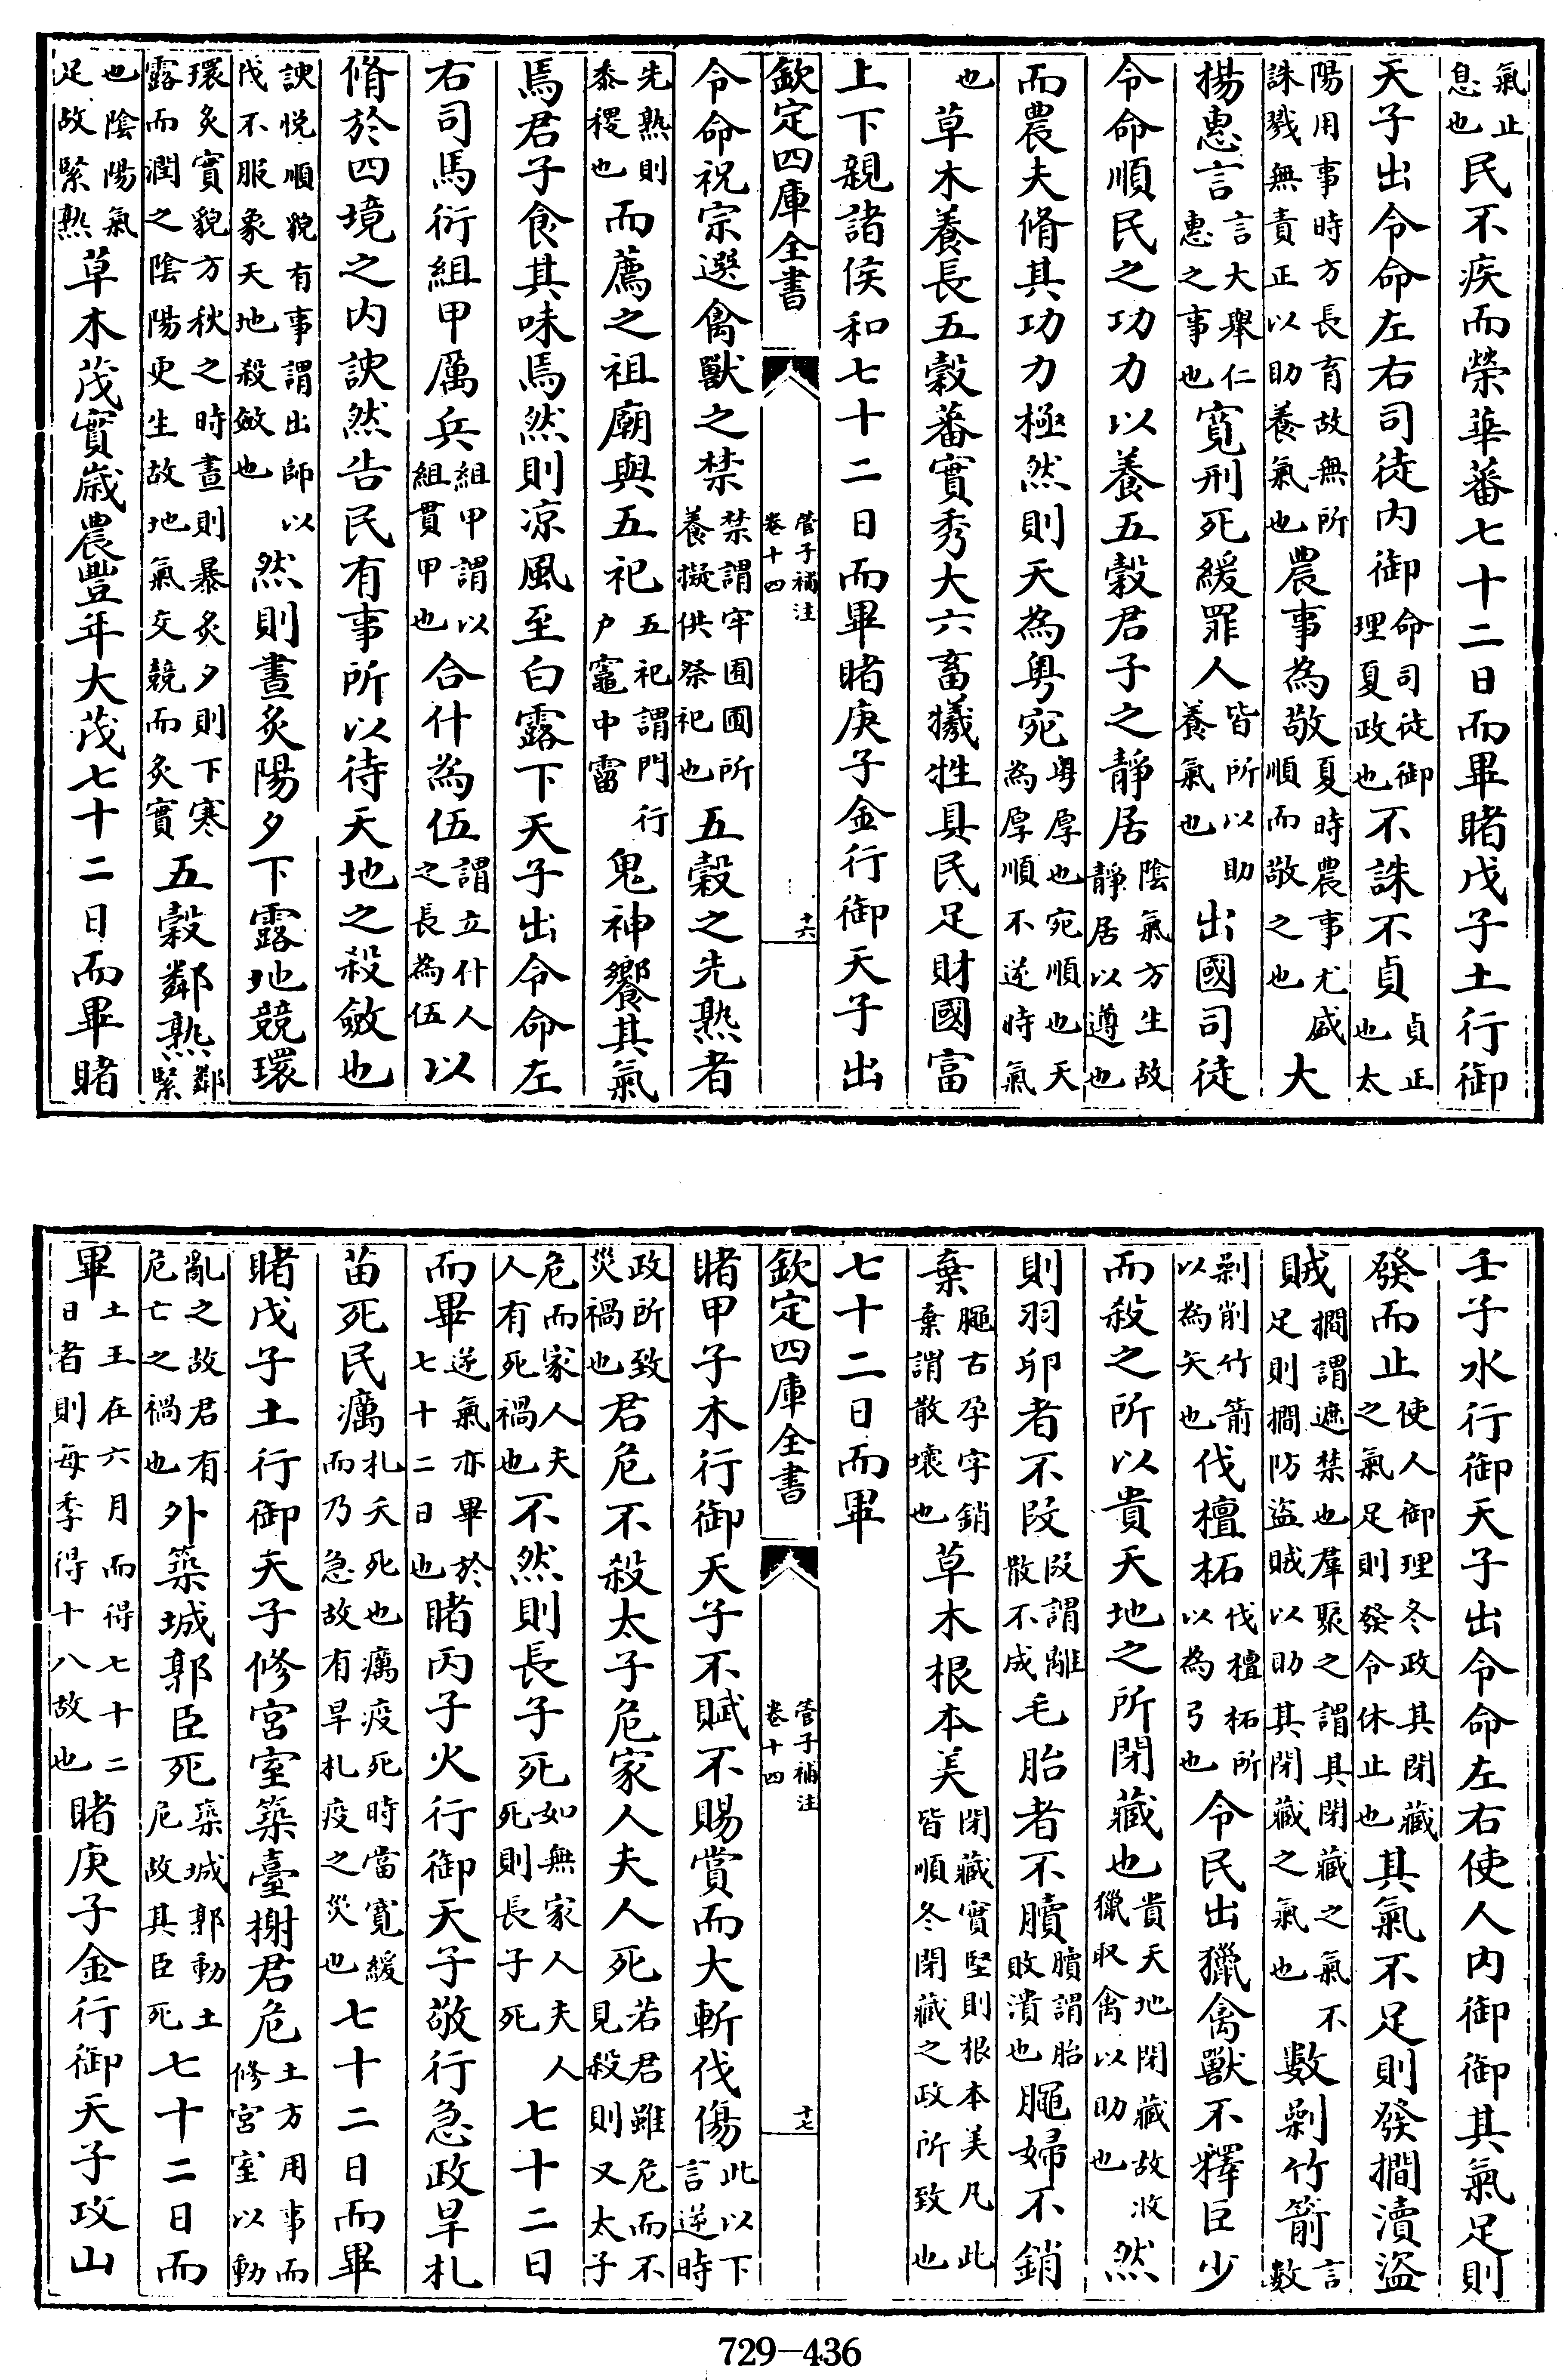 氣止息也民不疾而榮華蕃七十二日而畢睹戊子土行御
天子出令命左右司徒内御命司徒御理夏政也不誅不貞貞正也太
陽用事時方長育故無所誅戮無責正以助養氣也農事為敬夏時農事尤盛順而敬之也大
揚惠言言大舉仁惠之事也寛刑死緩罪人皆所以助養氣也出國司徒
令命順民之功力以養五穀君子之靜居陰氣方生故靜居以遵也
而農夫脩其功力極然則天為粤宛粤厚也宛順也天為厚順不逆時氣
也草木養長五穀蕃實秀大六畜犧牲具民足財國富
上下親諸侯和七十二日而畢睹庚子金行御天子出
欽定四庫全書
管子補注
卷十四
十六
令命祝宗選禽獸之禁禁謂牢圈圃所養擬供祭祀也五穀之先熟者
先熟則黍稷也而薦之祖廟與五祀五祀謂門行户竈中霤鬼神饗其氣
焉君子食其味焉然則凉風至白露下天子出令命左
右司馬衍組甲厲兵組甲謂以組貫甲也合什為伍謂立什人之長為伍以
脩於四境之内諛然告民有事所以待天地之殺斂也
諛悦順貌有事謂出師以伐不服象天地殺斂也然則晝炙陽夕下露地競環
環炙實貌方秋之時晝則暴炙夕則下寒露而潤之陰陽更生故地氣交競而炙實五穀鄰熟鄰緊
也陰陽氣足故緊熟草木茂實歲農豐年大茂七十二日而畢睹
壬子水行御天子出令命左右使人内御御其氣足則
發而止使人御理冬政其閉藏之氣足則發令休止也其氣不足則發㨴瀆盜
賊㨴謂遮禁也羣聚之謂具閉藏之氣不足則㨴防盜賊以助其閉藏之氣也數剝竹箭言數
剝削竹箭以為矢也伐檀柘伐檀柘所以為弓也令民出獵禽獸不釋巨少
而殺之所以貴天地之所閉藏也貴天地閉藏故收獵取禽以助也然
則羽卵者不段段謂離散不成毛胎者不贕贕謂胎敗潰也䑏婦不銷
棄䑏古孕字銷棄謂散壞也草木根本美閉藏實堅則根本美凡此皆順冬閉藏之政所致也
七十二日而畢
欽定四庫全書
管子補注
卷十四
十七
睹甲子木行御天子不賦不賜賞而大斬伐傷此以下言逆時
政所致災禍也君危不殺太子危家人夫人死若君雖危而不見殺則又太子
危而家人夫人有死禍也不然則長子死如無家人夫人死則長子死七十二日
而畢逆氣亦畢於七十二日也睹丙子火行御天子敬行急政旱札
苗死民癘札夭死也癘疫死時當寛緩而乃急故有旱札疫之災也七十二日而畢
睹戊子土行御天子修宮室築臺榭君危土方用事而修宮室以動
亂之故君有危亡之禍也外築城郭臣死築城郭動土危故其臣死七十二日而
畢土王在六月而得七十二日者則每季得十八故也睹庚子金行御天子攻山
729—436